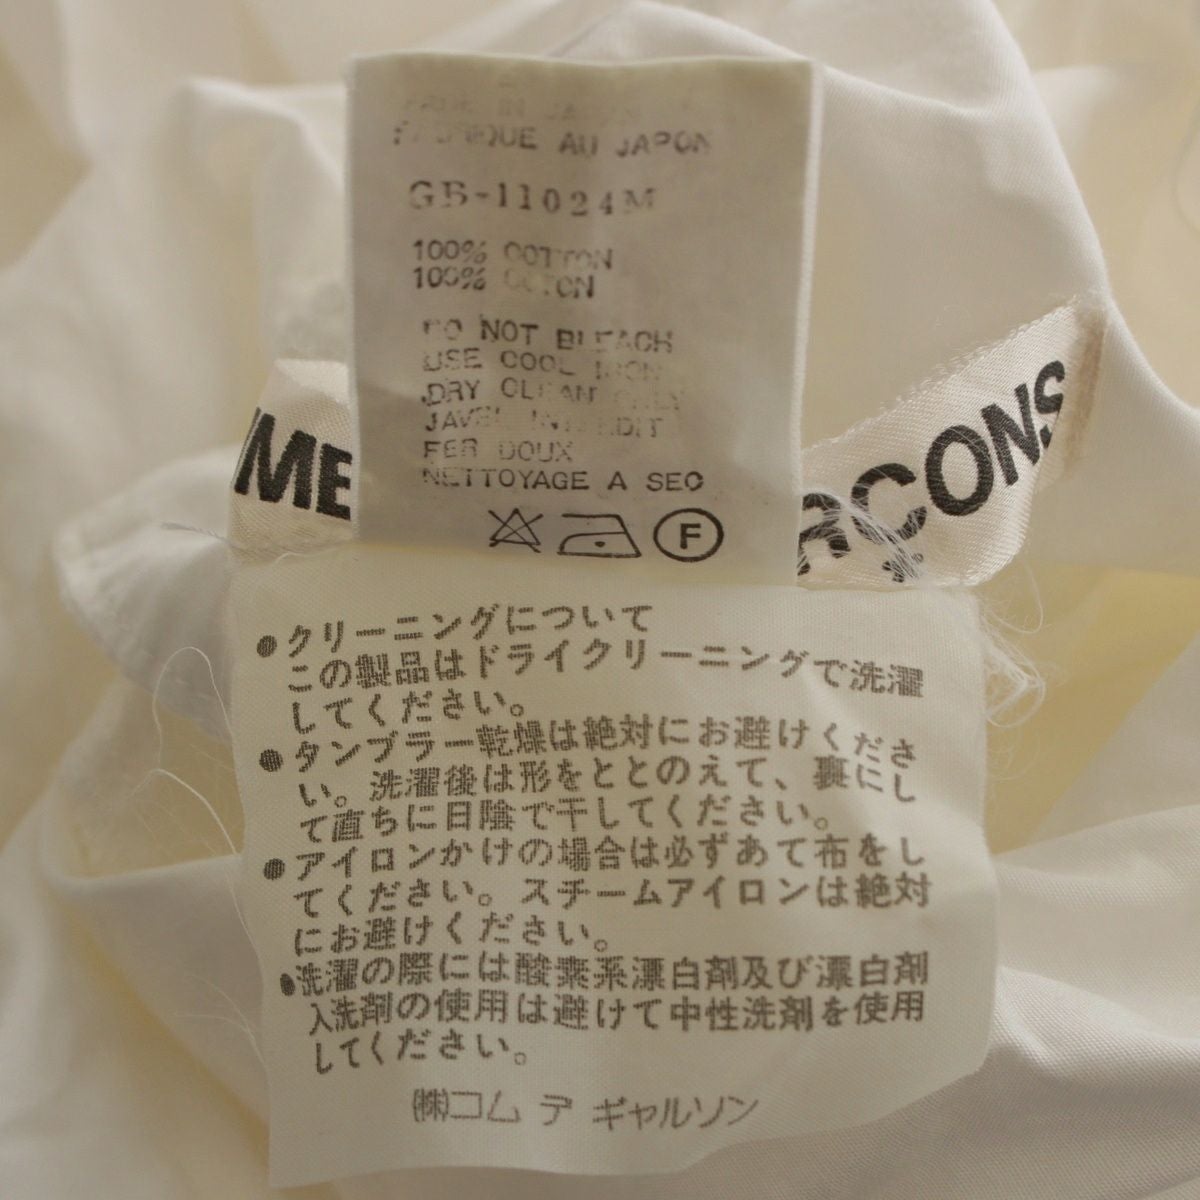 MADE IN JAPAN
FABRIQUE AU JAPON
GB-11024M
100% COTTON
100% COTON
DO NOT BLEACH
USE COOL IRON
DRY CLEAN ONLY
JAVEL INTERDIT
FER DOUX
NETTOYAGE A SEC
F
ME
RÇONS
●クリーニングについて
この製品はドライクリーニングで洗濯
してください。
●タンブラー乾燥は絶対にお避けくださ
い。洗濯後は形をととのえて、裏にし
て直ちに日陰で干してください。
●アイロンかけの場合は必ずあて布をし
てください。スチームアイロンは絶対
にお避けください。
●洗濯の際には酸素系漂白剤及び漂白剤
入洗剤の使用は避けて中性洗剤を使用
してください。
㈱コム デ ギャルソン